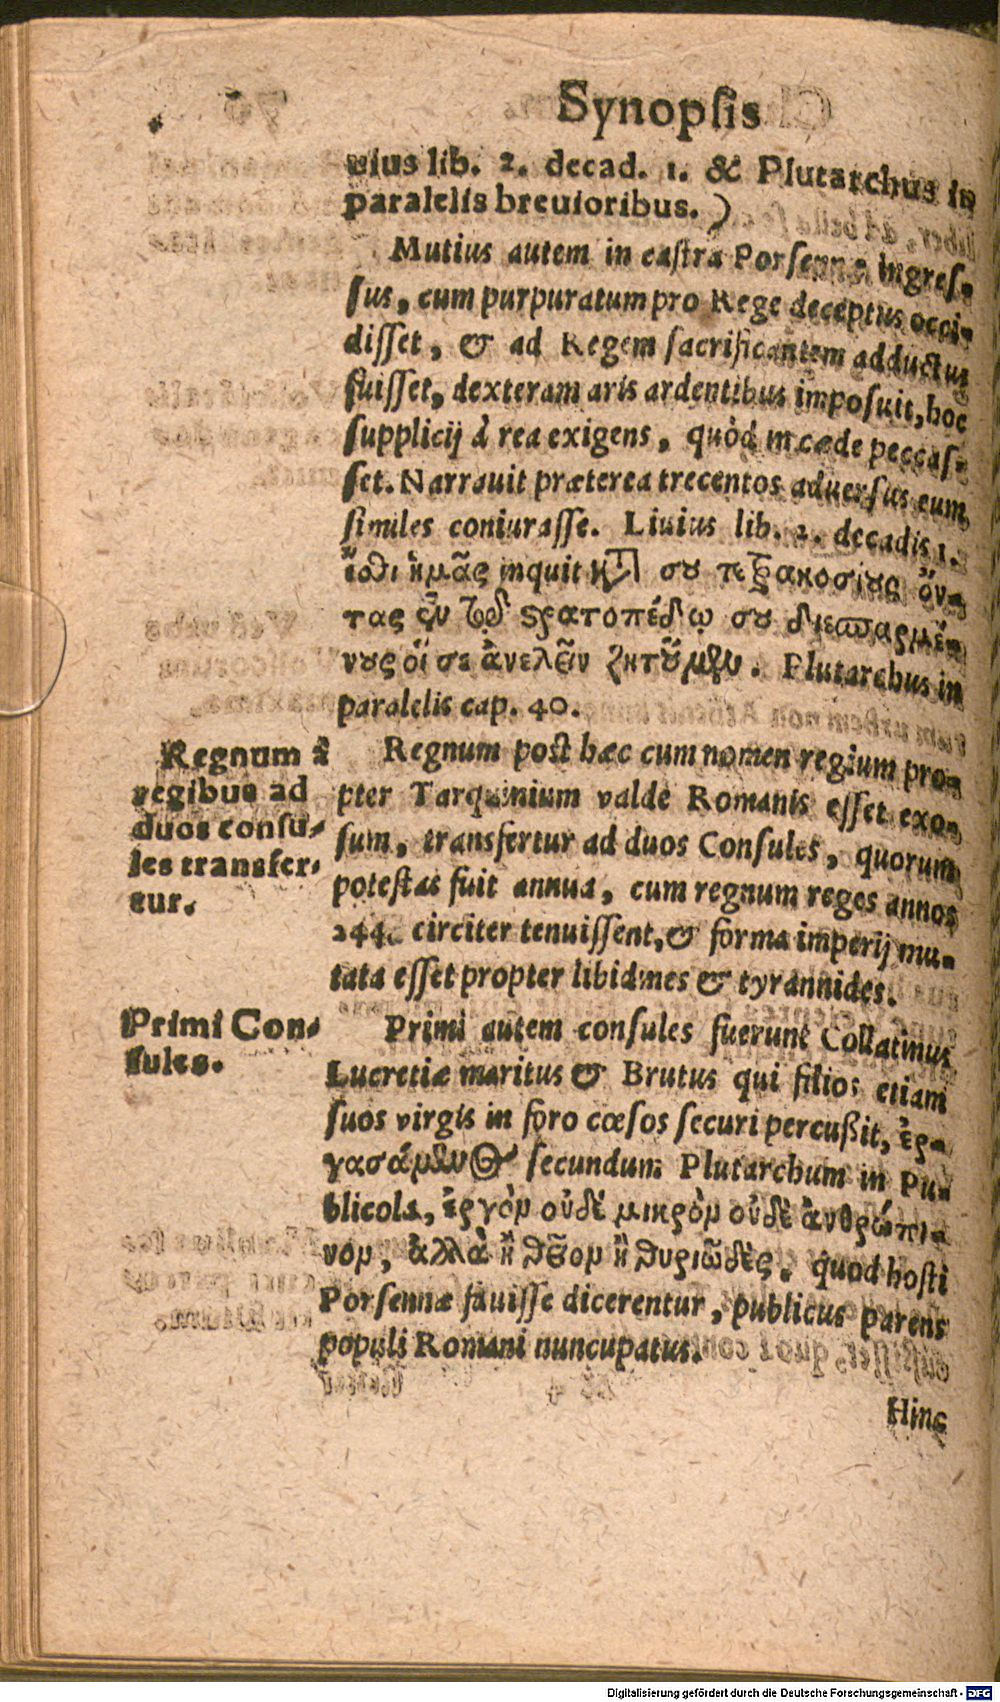 Synopsis
uius lib. 2. decad. 1. & Plutarchus in
paralelis breuioribus.)
Mutius autem in castra Porsennæ ingres-
sus, cum purpuratum pro Rege deceptus occi-
disset, & ad Regem sacrificantem adductus
fuisset, dexteram aris ardentibus imposuit, hoc
supplicij à rea exigens, quòd in cæde peccas-
set. Narrauit præterea trecentos aduersus eum
similes coniurasse. Liuius lib. 2. decadis 1.
ἴσθι ἡμᾶς inquit κτ̀ σου τετρακοσίους ὄν-
τας ἐν τῷ στρατοπέδῳ σου διεσπαρμέ-
νους οἵ σε ἀνελεῖν ζητοῦμεν. Plutarchus in
paralelis cap. 40.
Regnum à
regibus ad
duos consu-
les transfer-
tur.
Regnum post hæc cum nomen regium pro-
pter Tarquinium valde Romanis esset exo-
sum, transfertur ad duos Consules, quorum
potestas fuit annua, cum regnum reges annos
244. circiter tenuissent, & forma imperij mu-
tata esset propter libidines & tyrannides.
Primi Con-
sules.
Primi autem consules fuerunt Collatinus
Lucretiæ maritus & Brutus qui filios etiam
suos virgis in foro cæsos securi percußit, ἐρ-
γασάμενος secundum Plutarchum in Pu-
blicola, ἔργὸν οὐδὲ μικρὸν οὐδὲ ἀνθρώπι-
νον, ἀλλὰ ἢ θεῖον ἢ θυριῶδὲς. quod hosti
Porsennæ fauisse dicerentur, publicus parens
populi Romani nuncupatus.
Hinc
Digitalisierung gefördert durch die Deutsche Forschungsgemeinschaft - DFG